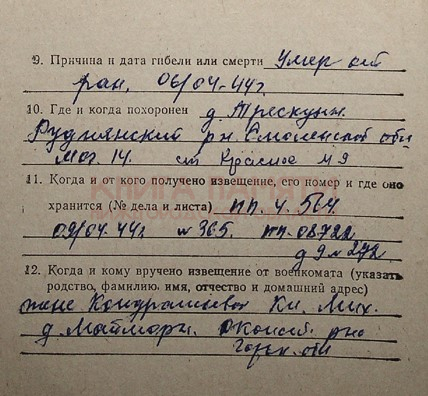 9. Причина и дата гибели или смерти умер от
ран, 06/04-44г.
10. Где и когда похоронен д. Трескуны
Руднянский р-н. Смоленской обл
Мог. 14. ст Красное м 9
11. Когда и от кого получено извещение, его номер и где оно
хранится (№ дела и листа) пп. ч. 564
09/04.44г. № 365. пп. 08722
д 9 л 272
12. Когда и кому вручено извещение от военкомата (указать
родство, фамилию, имя, отчество и домашний адрес)
жене Кондрашовой Кл. Мих.
д. Майморы.
Горьк. обл